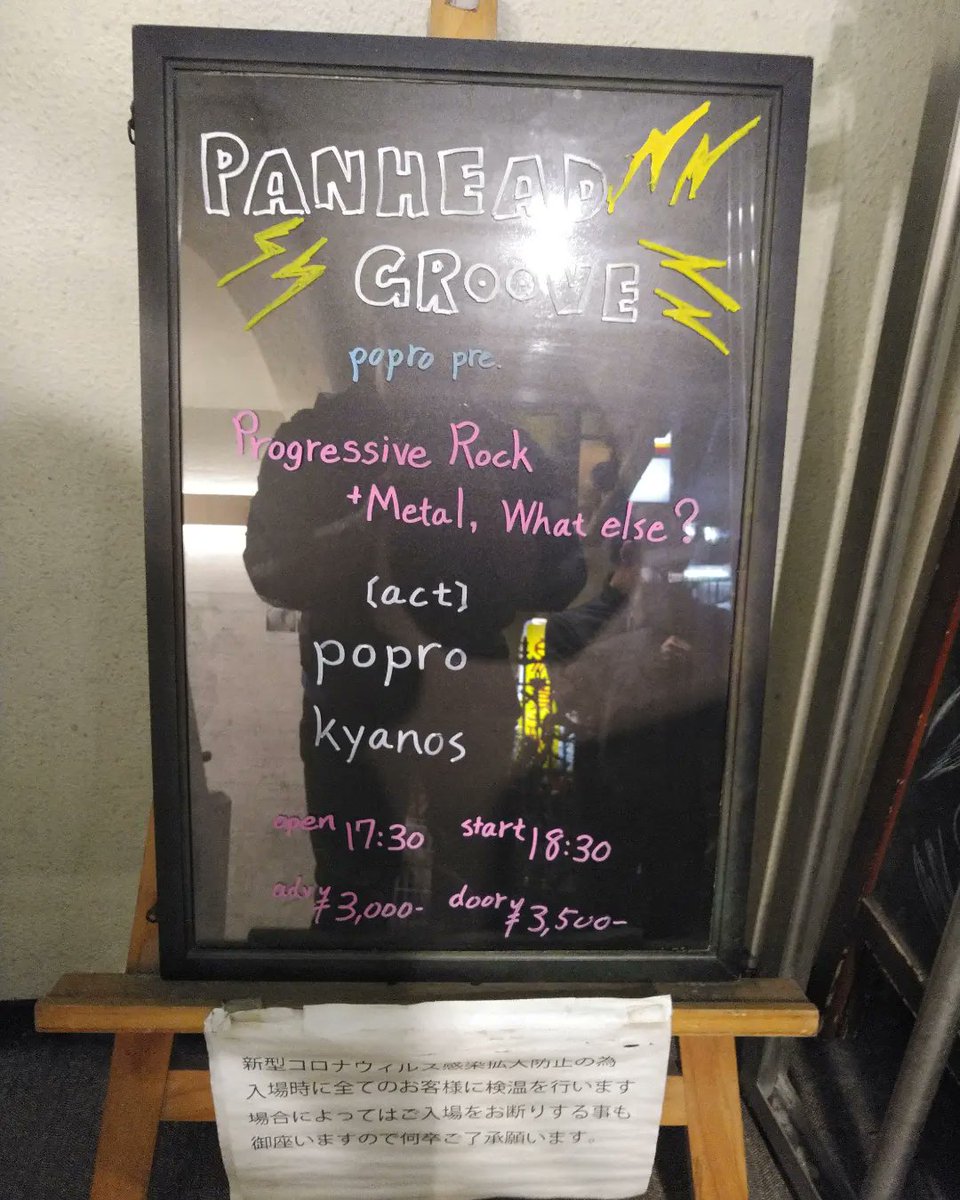 PANHEAD
GROOVE
popro pre.
Progressive Rock
+Metal, What else?
[act]
popro
kyanos
open 17:30 start 18:30
adv ¥3,000- door ¥3,500-
新型コロナウィルス感染拡大防止の為
入場時に全てのお客様に検温を行います
場合によってはご入場をお断りする事も
御座いますので何卒ご了承願います。